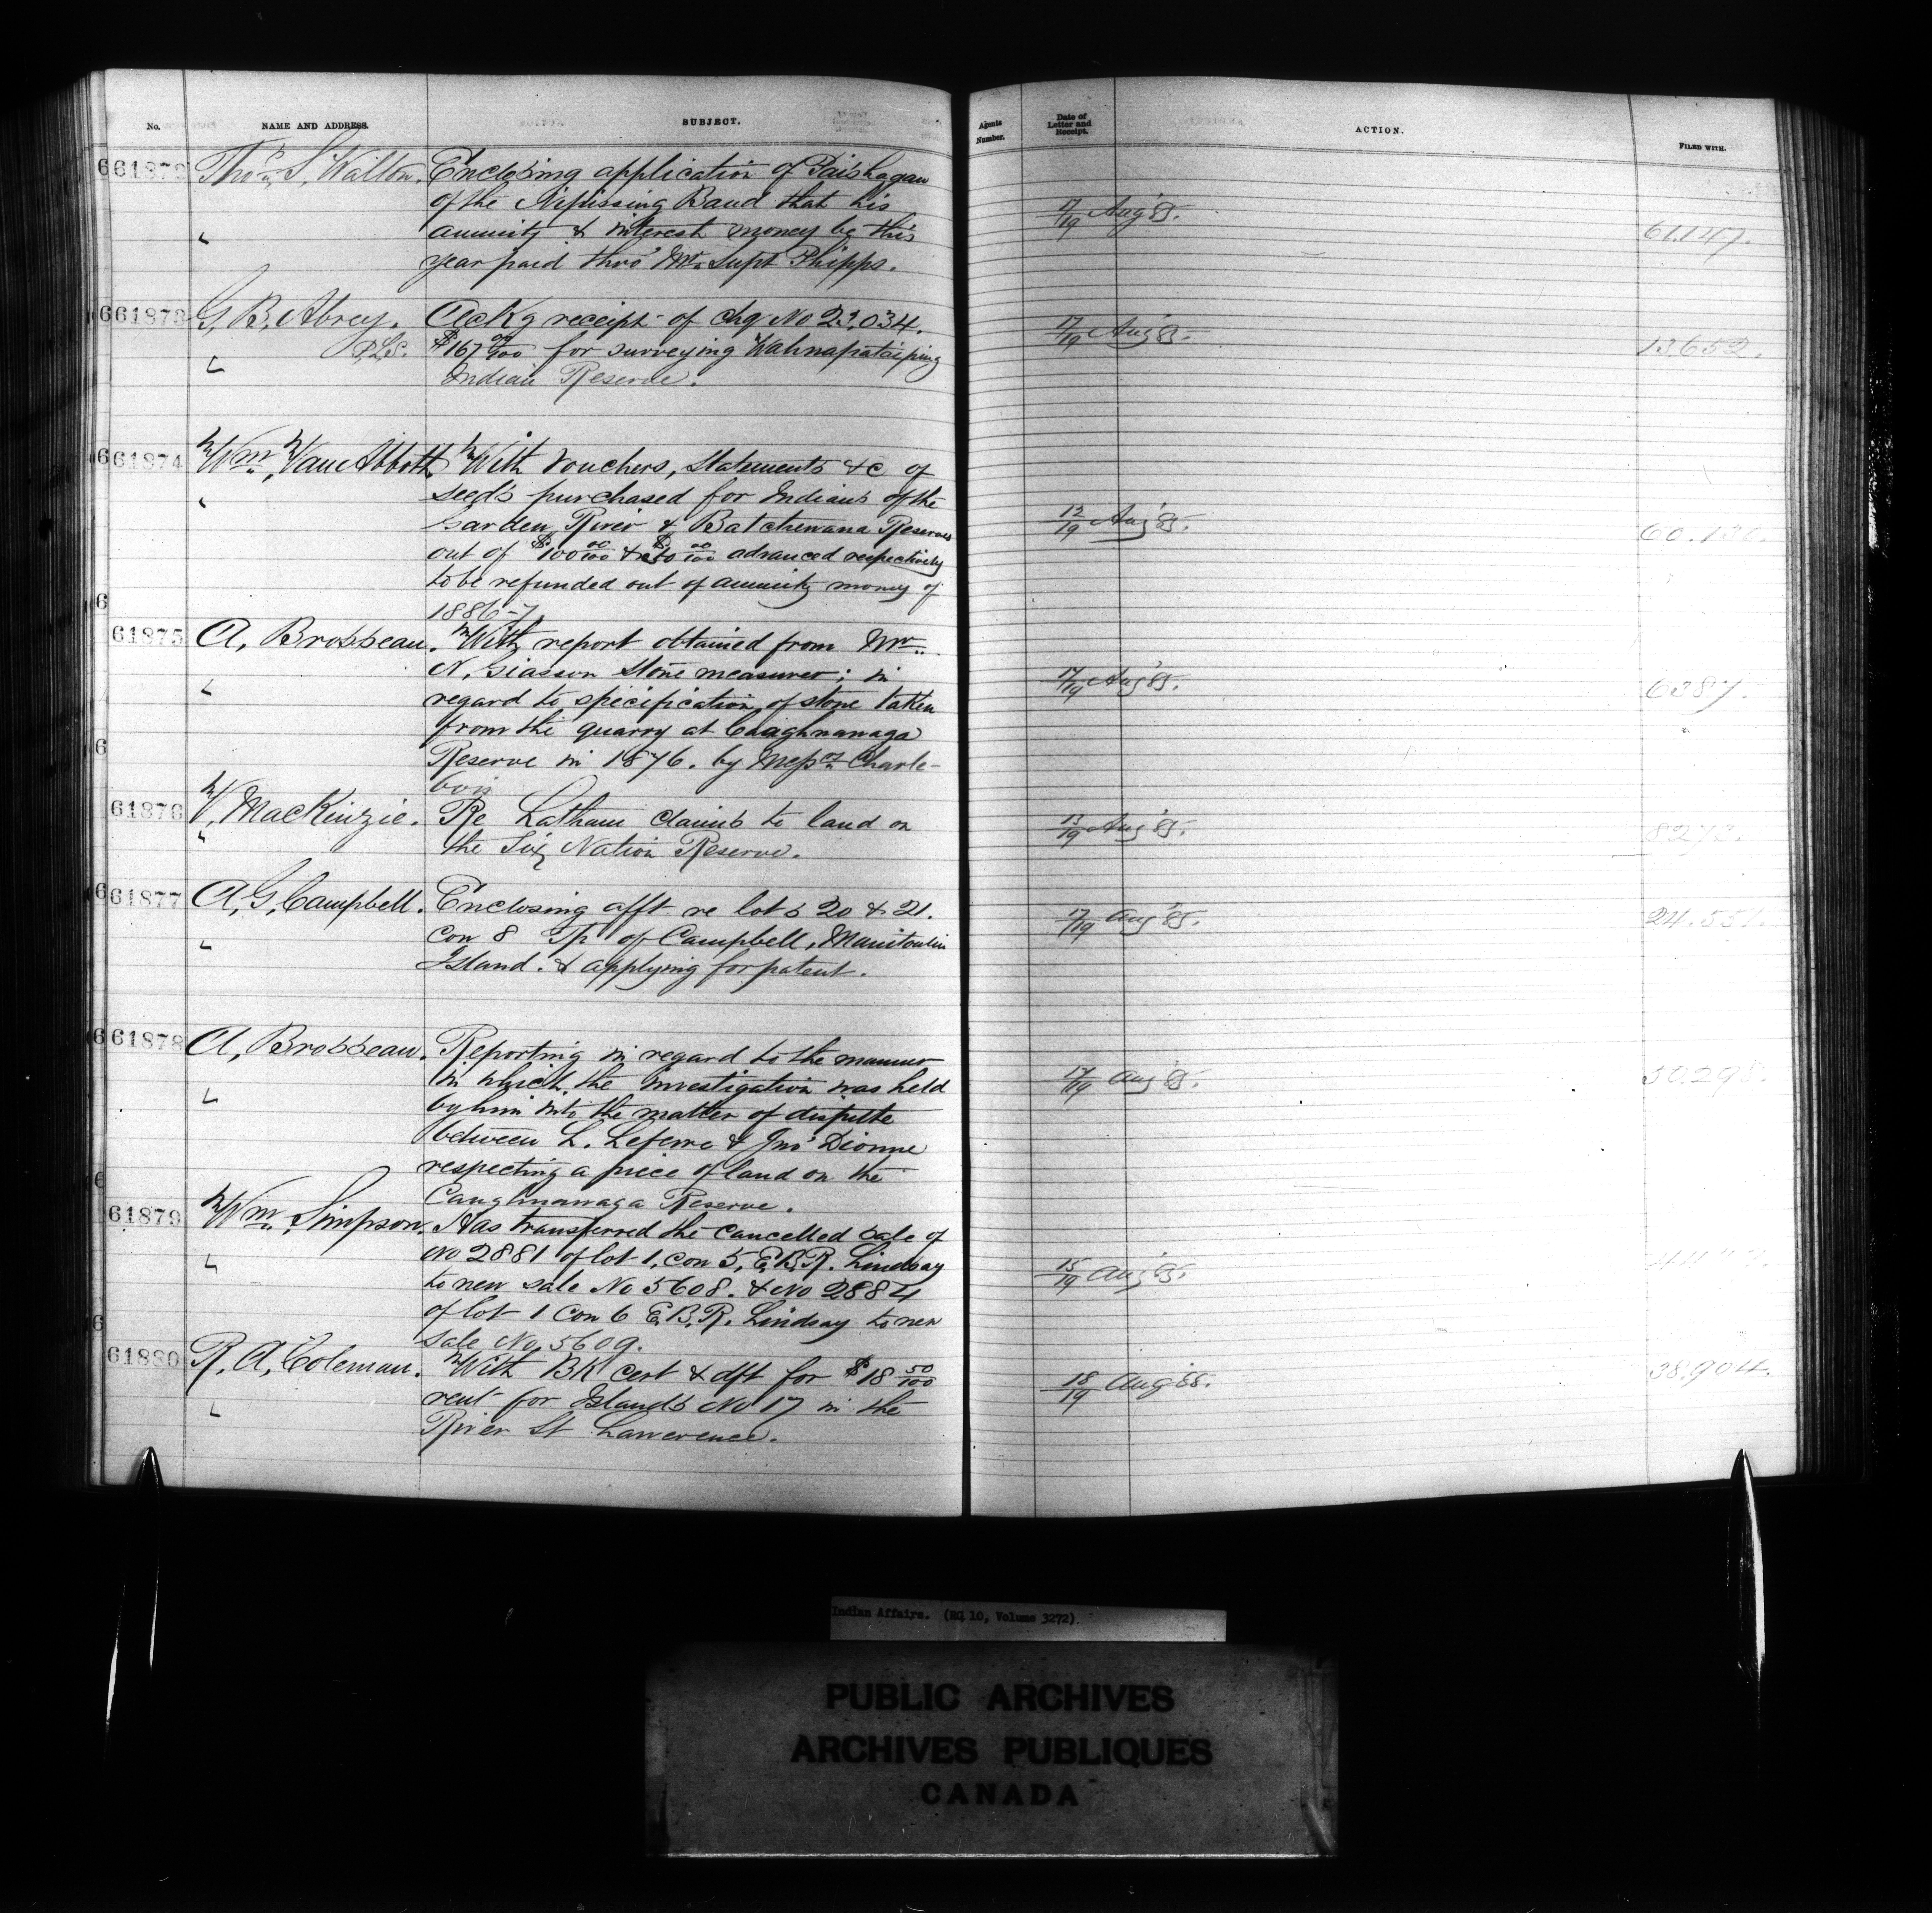 No. NAME AND ADDRESS. SUBJECT. Agents Number. Date of Letter and Receipt. ACTION. FILED WITH.
61872 Thos. S. Walton. Enclosing application of Paishagan
of the Nipissing Band that his 17/19 Aug '85.
" annuity & interest money be this 61.147.
year paid thro' Mr. Supt Phipps.
61873 G. B. Abrey. Ackg receipt of chq No 23,034. 17/19 Aug '85.
P.L.S. $167 00/100 for surveying Wahnapataeping 13,652.
" Indian Reserve.
61874 Wm. Van Abbott With Vouchers, Statements &c of
" seeds purchased for Indians of the
Garden River & Batchewana Reserves 12/19 Aug '85. 60.130.
out of $100 00/100 & $50 00/100 advanced respectively
to be refunded out of annuity money of
1886-7
61875 A. Brosseau. With report obtained from Mr.
N. Giasson Stone measurer; in 17/19 Aug '85. 6387.
" regard to specification of stone taken
from the quarry at Caughnanaga
Reserve in 1876. by Messrs Charle-
bois
61876 V. MacKinzie. Re Latham claims to land on 13/19 Aug '85.
" the Six Nation Reserve. 8273.
61877 A. G. Campbell. Enclosing afft re lots 20 & 21. 17/19 Aug '85. 24.551.
" Con 8 Tp of Campbell, Manitoulin
Island. & applying for patent.
61878 A. Brosseau. Reporting in regard to the manner
in which the investigation was held 17/19 Aug '85. 30298.
" by him into the matter of dispute
between L. Lefevre & Jno' Dionne
respecting a piece of land on the
Caughnawaga Reserve.
61879 Wm. Simpson. Has transferred the cancelled sale of
" No 2881 of lot 1, con 5, E.B.R. Lindsay 15/19 Aug '85.
to new sale No 5608. & No 2884
of lot 1 Con 6 E.B.R. Lindsay to new
Sale No 5609.
61880 R. A. Coleman. With BK cert & dft for $18 50/100 18/19 Aug '85. 38,904.
" rent for Islands No 17 in the
River St Lawerence.
Indian Affairs. (RG 10, Volume 3272)
PUBLIC ARCHIVES
ARCHIVES PUBLIQUES
CANADA